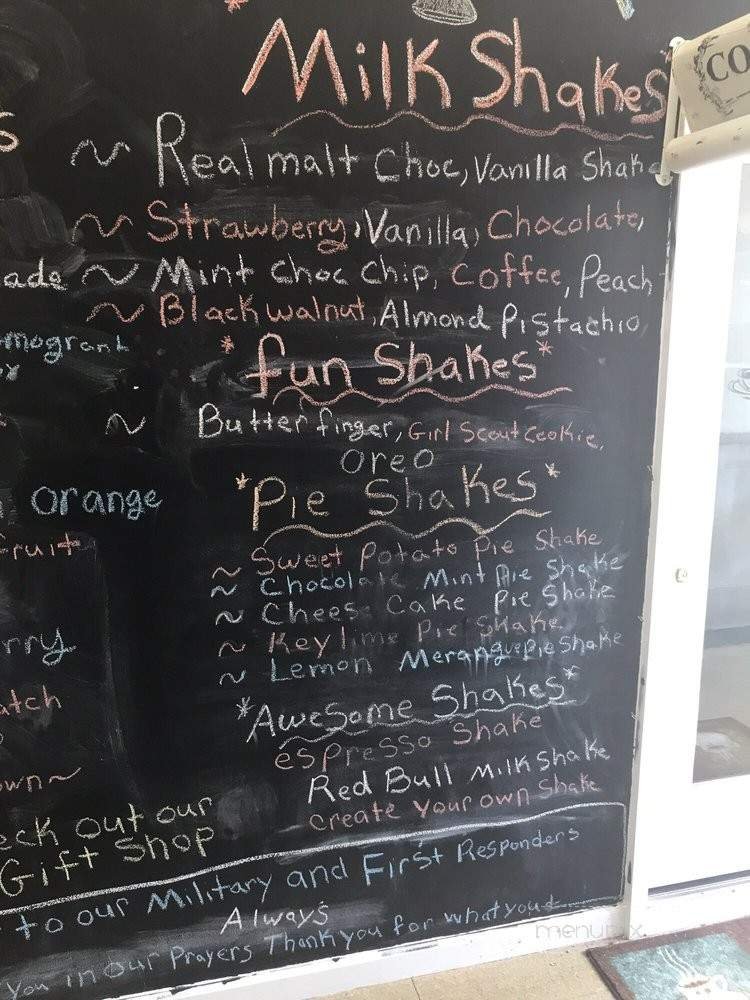 CO
Milk Shakes
s
~ Real malt Choc, Vanilla Shake
~ Strawberry, Vanilla, Chocolate,
ade ~ Mint Choc Chip, Coffee, Peach
~ Black walnut, Almond Pistachio
mogrant
*fun Shakes*
~ Butterfinger, Girl Scout Cookie,
oreo
*Pie Shakes*
orange
~ Sweet Potato Pie Shake
fruit
~ Chocolate Mint Pie Shake
~ Cheese Cake Pie Shake
~ Key lime Pie Shake
rry
~ Lemon Merangue Pie Shake
atch
*Awesome Shakes*
espresso Shake
own~
Red Bull Milk Shake
create your own Shake
eck out our
Gift Shop
to our Military and First Responders
Always
you in our Prayers Thank you for what you
menupix